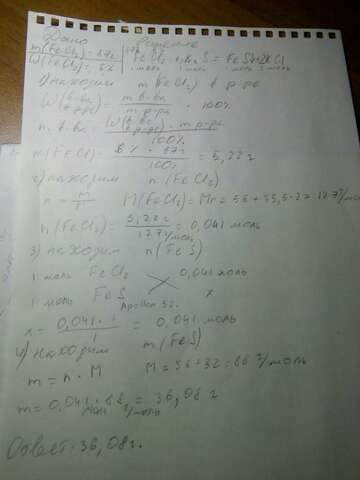 Дано Решение
m(FeCl2) = 87г FeCl2 + K2S = FeS + 2KCl
W(FeCl2) = 6% 1 моль 1 моль 1 моль 2 моль
1) находим m(FeCl2) в р-ре
W(в-ва в р-ре) = m в-ва / m р-ра · 100%
m в-ва = W(в-ва в р-ре) · m р-ра / 100%
m(FeCl2) = 6% · 87г / 100% = 5,22г
2) находим n(FeCl2)
n = m/M M(FeCl2) = Mr = 56 + 35,5·2 = 127г/моль
n(FeCl2) = 5,22г / 127г/моль = 0,041 моль
3) находим n(FeS)
1 моль FeCl2 0,041 моль
1 моль FeS x
Apollon 32.
x = 0,041 · 1 / 1 = 0,041 моль
4) находим m(FeS)
m = n · M M = 56 + 32 = 88 г/моль
m = 0,041 моль · 88 г/моль = 36,08 г
Ответ: 36,08г.